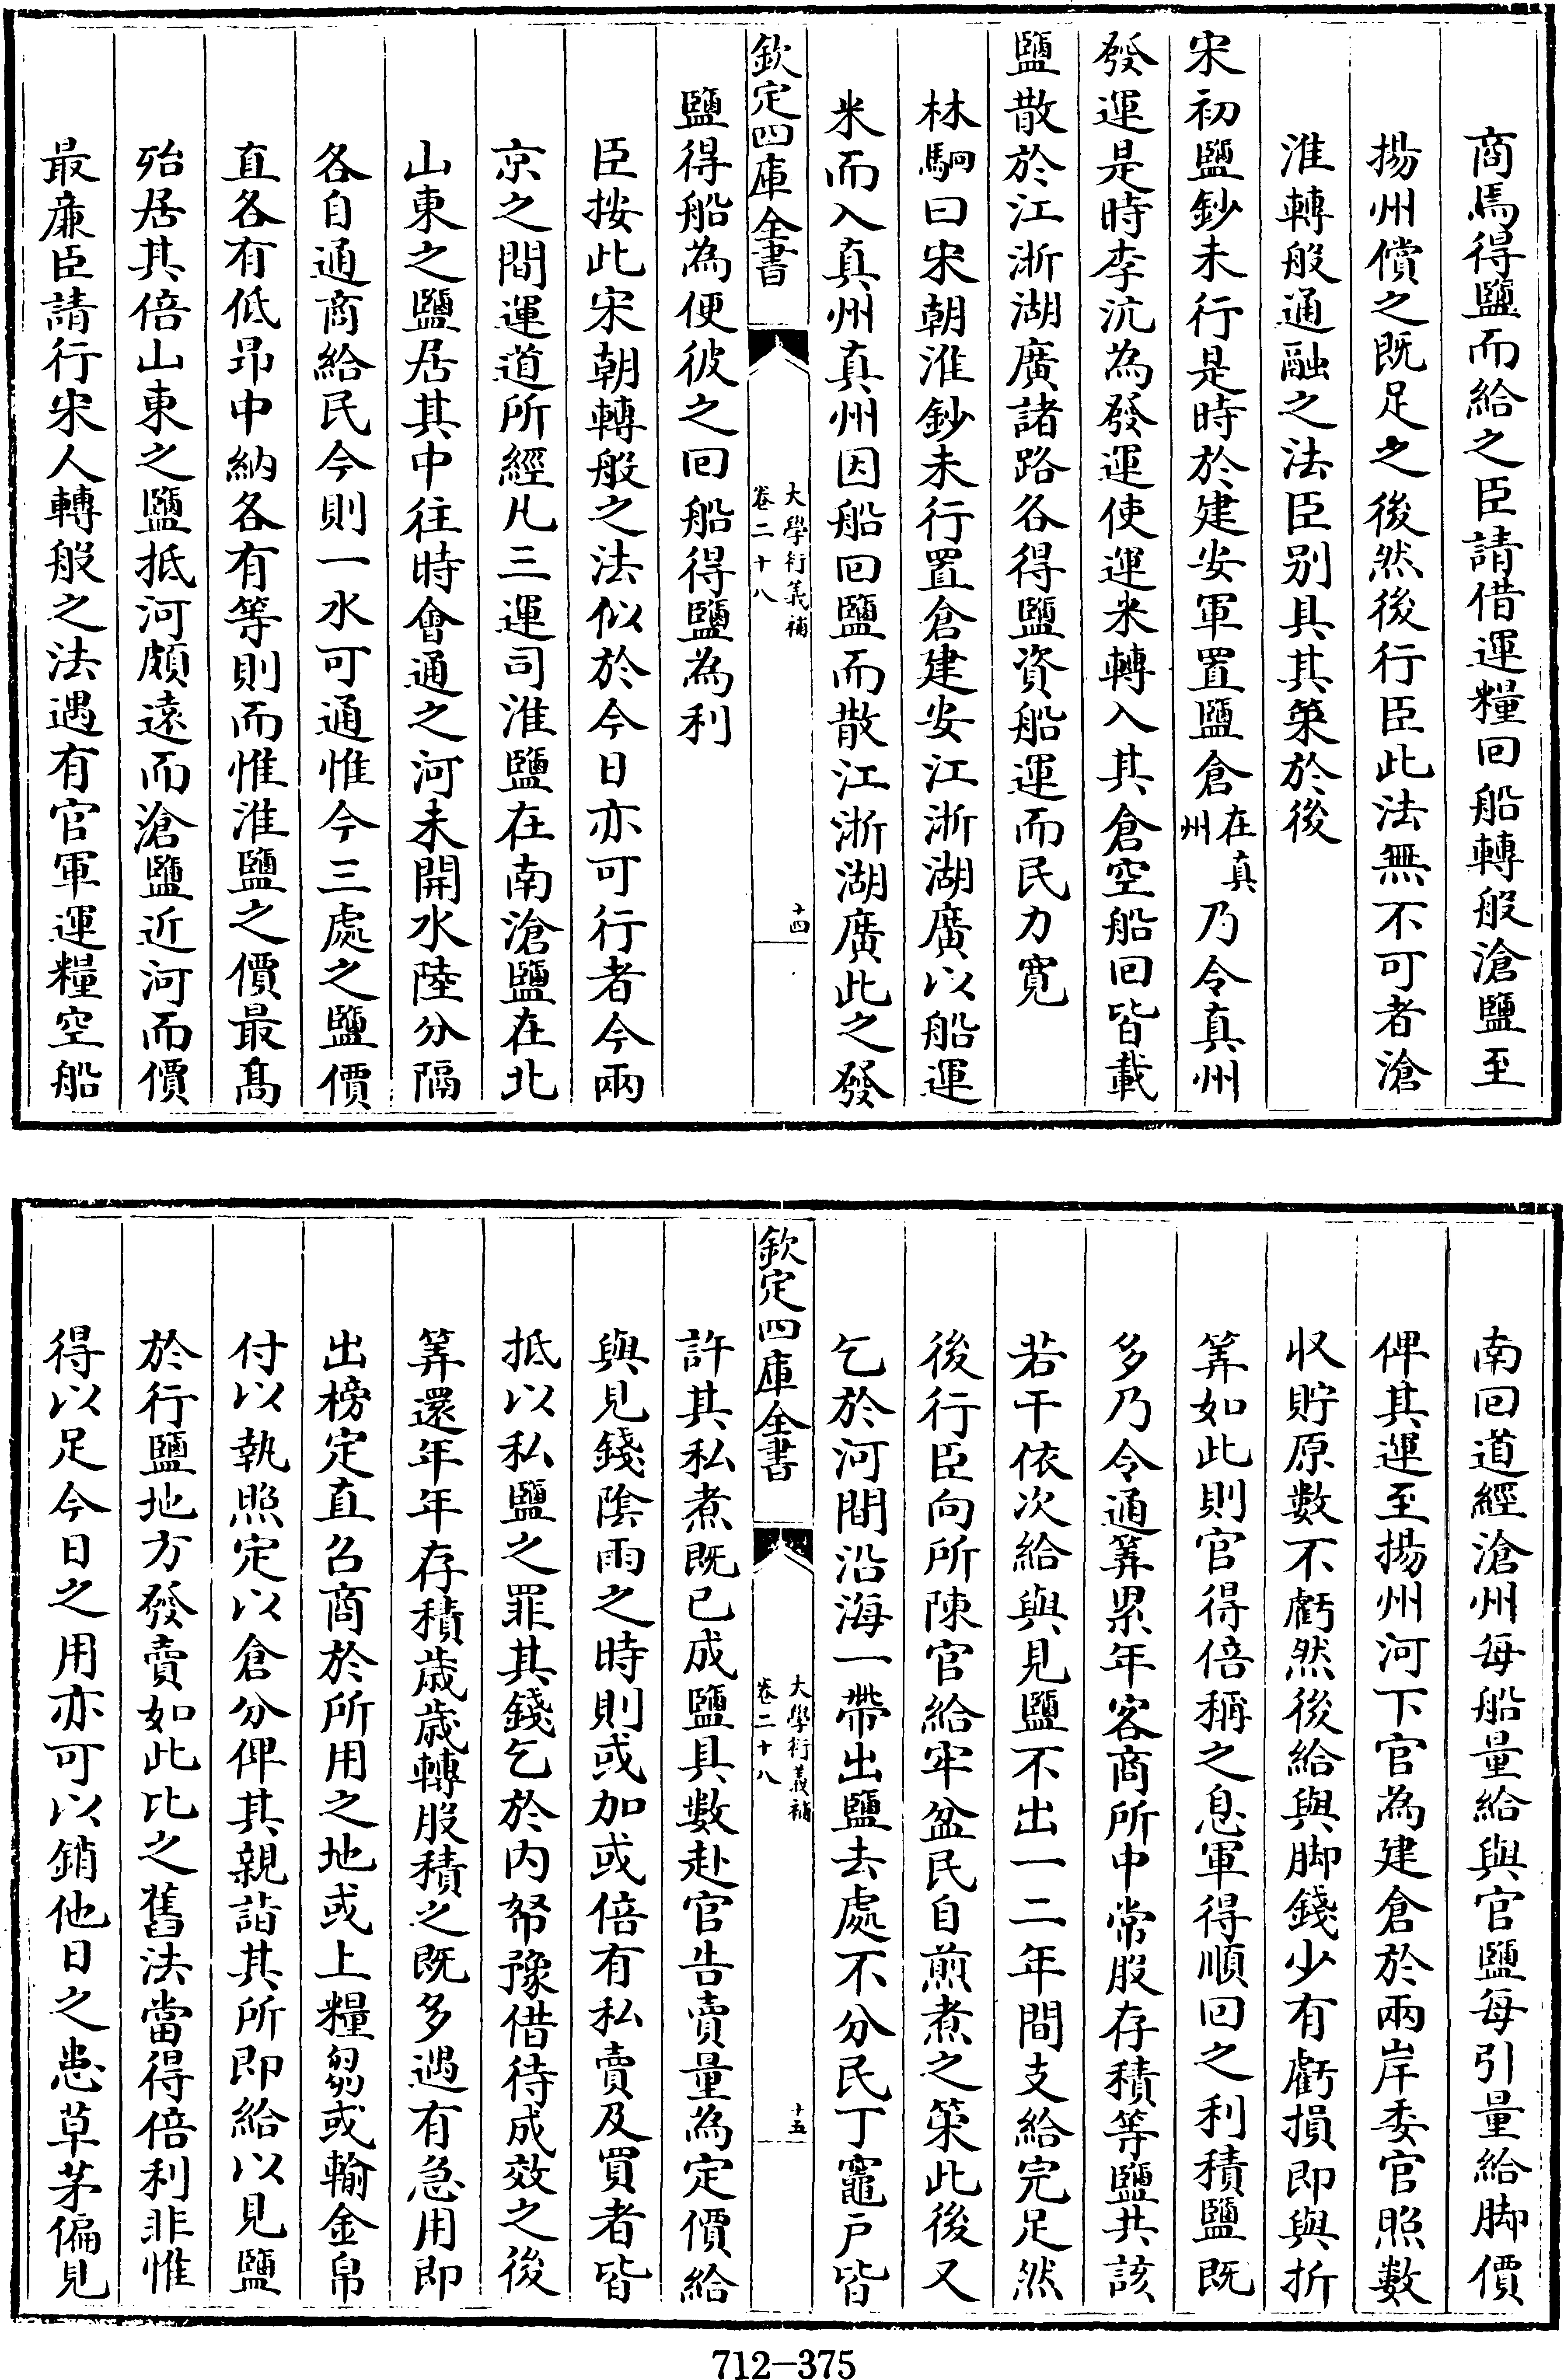 商焉得鹽而給之臣請借運糧回船轉般滄鹽至
揚州償之既足之後然後行臣此法無不可者滄
淮轉般通融之法臣别具其策於後
宋初鹽鈔未行是時於建安軍置鹽倉在真州乃令真州
發運是時李沆為發運使運米轉入其倉空船回皆載
鹽散於江浙湖廣諸路各得鹽資船運而民力寛
林駉曰宋朝淮鈔未行置倉建安江浙湖廣以船運
米而入真州真州因船回鹽而散江浙湖廣此之發
欽定四庫全書
大學衍義補
卷二十八
十四
鹽得船為便彼之回船得鹽為利
臣按此宋朝轉般之法似於今日亦可行者今兩
京之間運道所經凡三運司淮鹽在南滄鹽在北
山東之鹽居其中往時會通之河未開水陸分隔
各自通商給民今則一水可通惟今三處之鹽價
直各有低昂中納各有等則而惟淮鹽之價最髙
殆居其倍山東之鹽抵河頗遠而滄鹽近河而價
最廉臣請行宋人轉般之法遇有官軍運糧空船
南回道經滄州每船量給與官鹽每引量給脚價
俾其運至揚州河下官為建倉於兩岸委官照數
收貯原數不虧然後給與脚錢少有虧損即與折
筭如此則官得倍稱之息軍得順回之利積鹽既
多乃令通筭累年客商所中常股存積等鹽共該
若干依次給與見鹽不出一二年間支給完足然
後行臣向所陳官給牢盆民自煎煮之策此後又
乞於河間沿海一帶出鹽去處不分民丁竈戸皆
欽定四庫全書
大學衍義補
卷二十八
十五
許其私煮既已成鹽具數赴官告賣量為定價給
與見錢陰雨之時則或加或倍有私賣及買者皆
抵以私鹽之罪其錢乞於内帑豫借待成效之後
筭還年年存積歲歲轉股積之既多遇有急用即
出榜定直召商於所用之地或上糧芻或輸金帛
付以執照定以倉分俾其親詣其所即給以見鹽
於行鹽地方發賣如此比之舊法當得倍利非惟
得以足今日之用亦可以銷他日之患草茅偏見
712-375